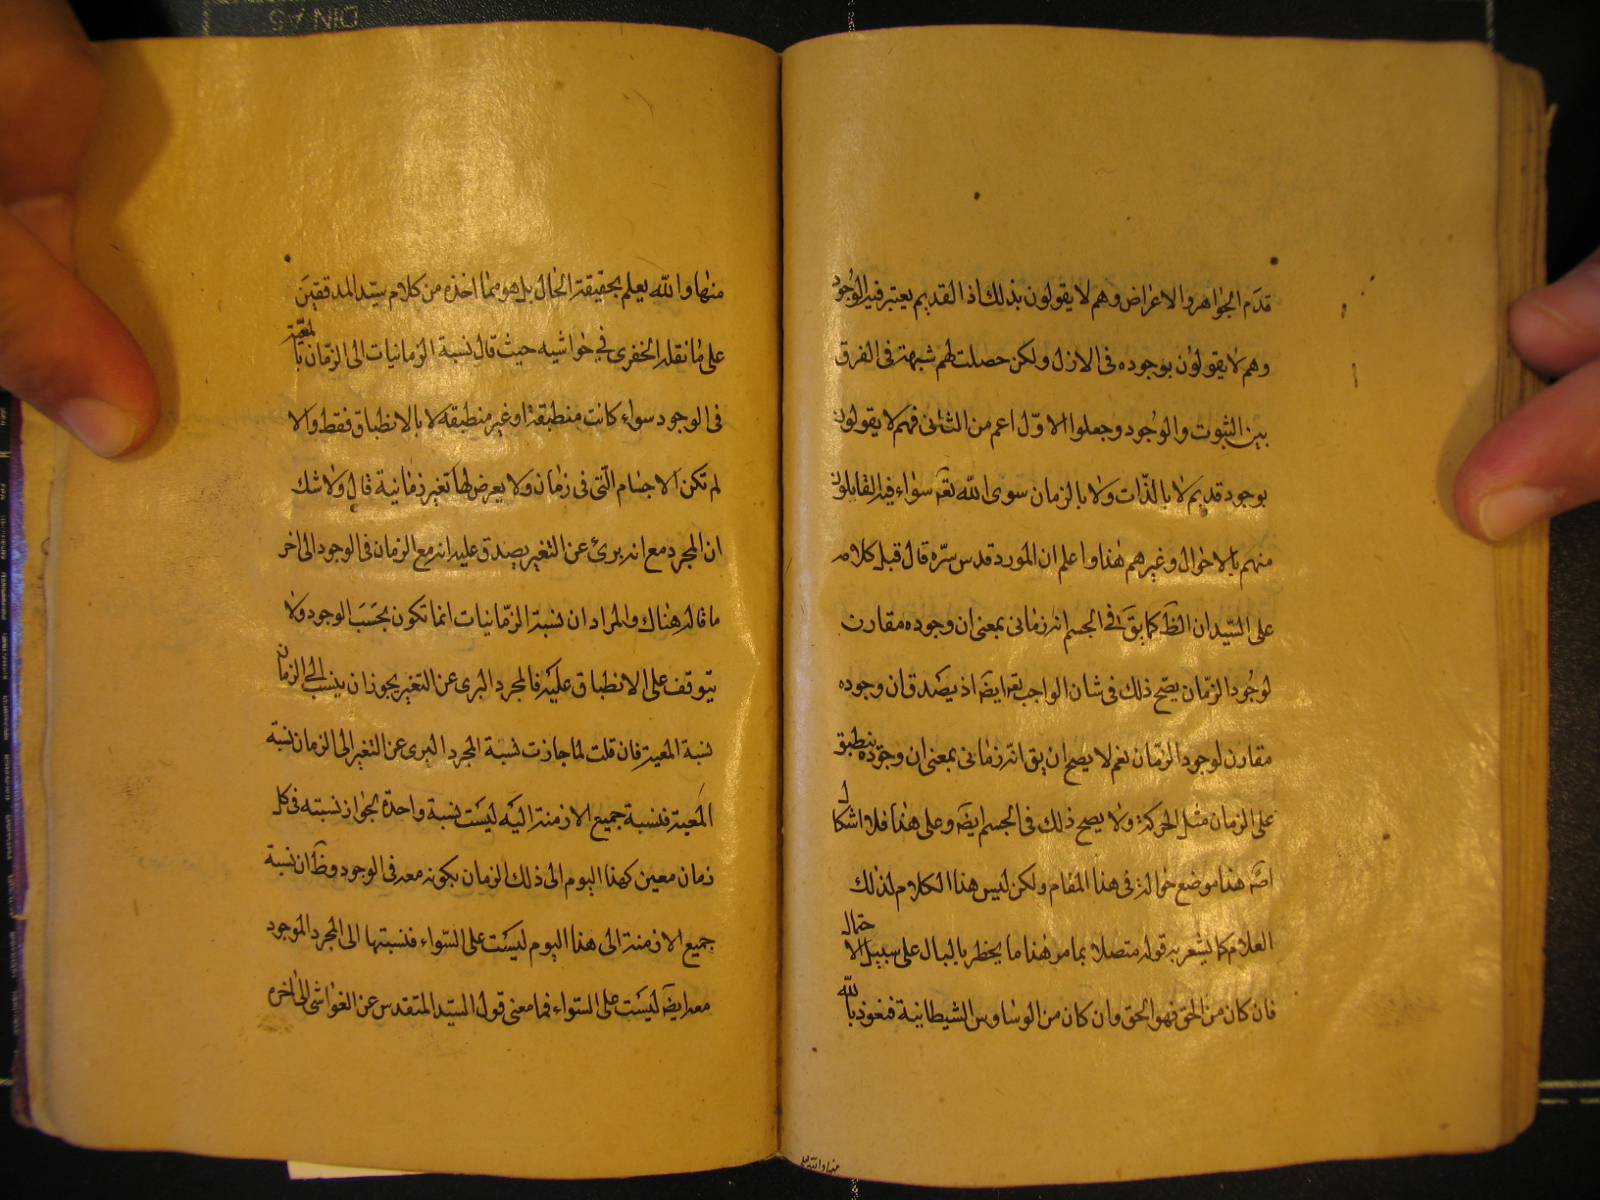 قدم الجواهر والاعراض وهم لا يقولون بذلك اذا القديم يعتبر فيه الوجود
وهم لا يقولون بوجوده فى الازل ولكن حصلت لهم شبهة فى الفرق
بين الثبوت والوجود وجعلوا الاول اعم من الثانى فهم لا يقولون
بوجود قديم لا بالذات ولا بالزمان سوى الله تعه سواء فيه القايلون
منهم بالاحوال وغيرهم هذا واعلم ان المورد قدس سره قال قبل كلامه
على السيد ان الظ كما يق فى الجسم انه زمانى بمعنى ان وجوده مقارن
لوجود الزمان يصح ذلك فى شان الواجب تعه ايضه اذ يصدق ان وجوده
مقارن لوجود الزمان نعم لا يصح ان يق انه زمانى بمعنى ان وجوده ينطبق
على الزمان مثل الحركة ولا يصح ذلك فى الجسم ايضه وعلى هذا فلا اشكال
اصه هذا موضع حوالة فى هذا المقام ولكن ليس هذا الكلام لذلك
العلام كما يشعر به قوله متصلا بما مر هذا ما يخطر بالبال على سبيل الاحتمال
فان كان من الحق فهو الحق وان كان من الوساوس الشيطانية فنعوذ بالله
منها والله يعلم
منها والله يعلم بحقيقة الحال بل هو مما اخذه من كلام سيد المدققين
على ما نقله الخفرى فى حواشيه حيث قال نسبة الزمانيات الى الزمان بالمعية
فى الوجود سواء كانت منطبقة او غير منطبقه لا بالانطباق فقط والا
لم تكن الاجسام التى فى زمان ولا يعرض لها تغير زمانية قال ولا شك
ان المجرد مع انه برئ عن التغير يصدق عليه انه مع الزمان فى الوجود الى اخر
ما قاله هناك والمراد ان نسبة الزمانيات انما تكون بحسب الوجود ولا
يتوقف على الانطباق عليه فالمجرد البرى عن التغير يجوز ان ينسب الى الزمان
نسبة المعية فان قلت لما جازت نسبة المجرد البرى عن التغير الى الزمان نسبة
المعية فنسبة جميع الازمنة اليه ليست نسبة واحدة لجواز نسبته فى كل
زمان معين كهذا اليوم الى ذلك الزمان بكونه معه فى الوجود وظ ان نسبة
جميع الازمنة الى هذا اليوم ليست على السواء فنسبتها الى المجرد الموجود
معه ايضه ليست على السواء فما معنى قول السيد المتقدس عن الغواشى الى اخره